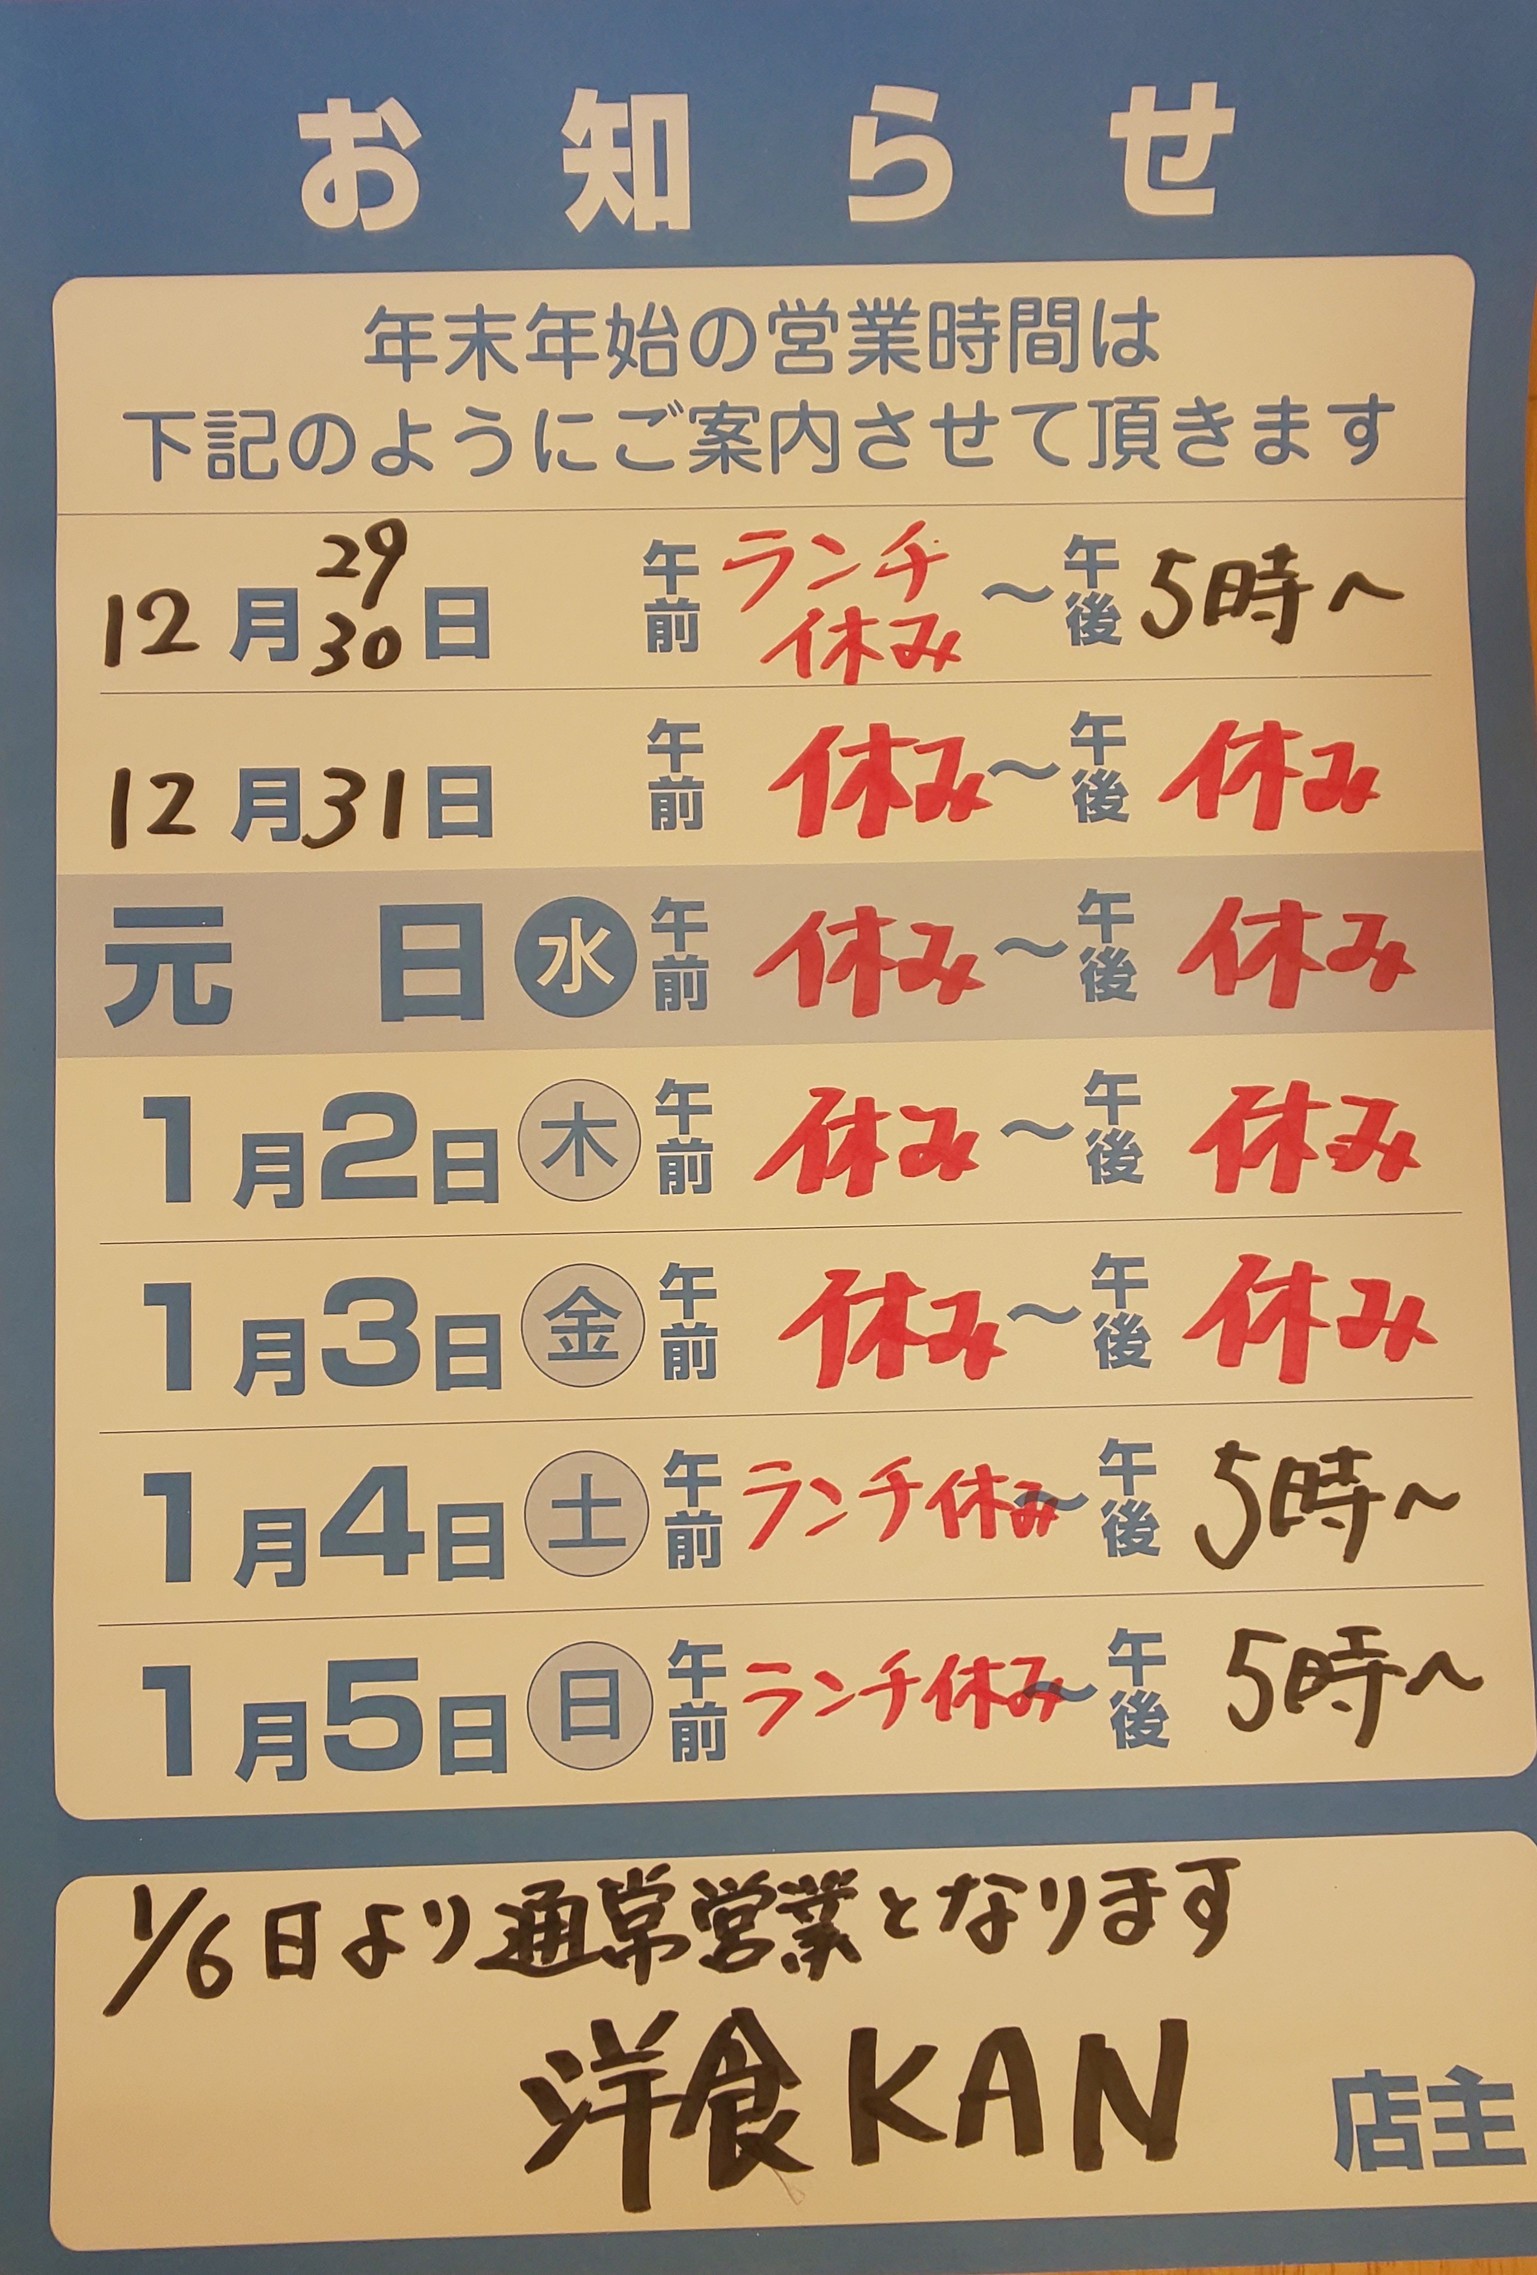 お知らせ
年末年始の営業時間は
下記のようにご案内させて頂きます
12月29 30日 午前 ランチ休み 〜 午後 5時〜
12月31日 午前 休み 〜 午後 休み
元日 水 午前 休み 〜 午後 休み
1月2日 木 午前 休み 〜 午後 休み
1月3日 金 午前 休み 〜 午後 休み
1月4日 土 午前 ランチ休み 〜 午後 5時〜
1月5日 日 午前 ランチ休み 〜 午後 5時〜
1/6日より通常営業となります
洋食KAN 店主